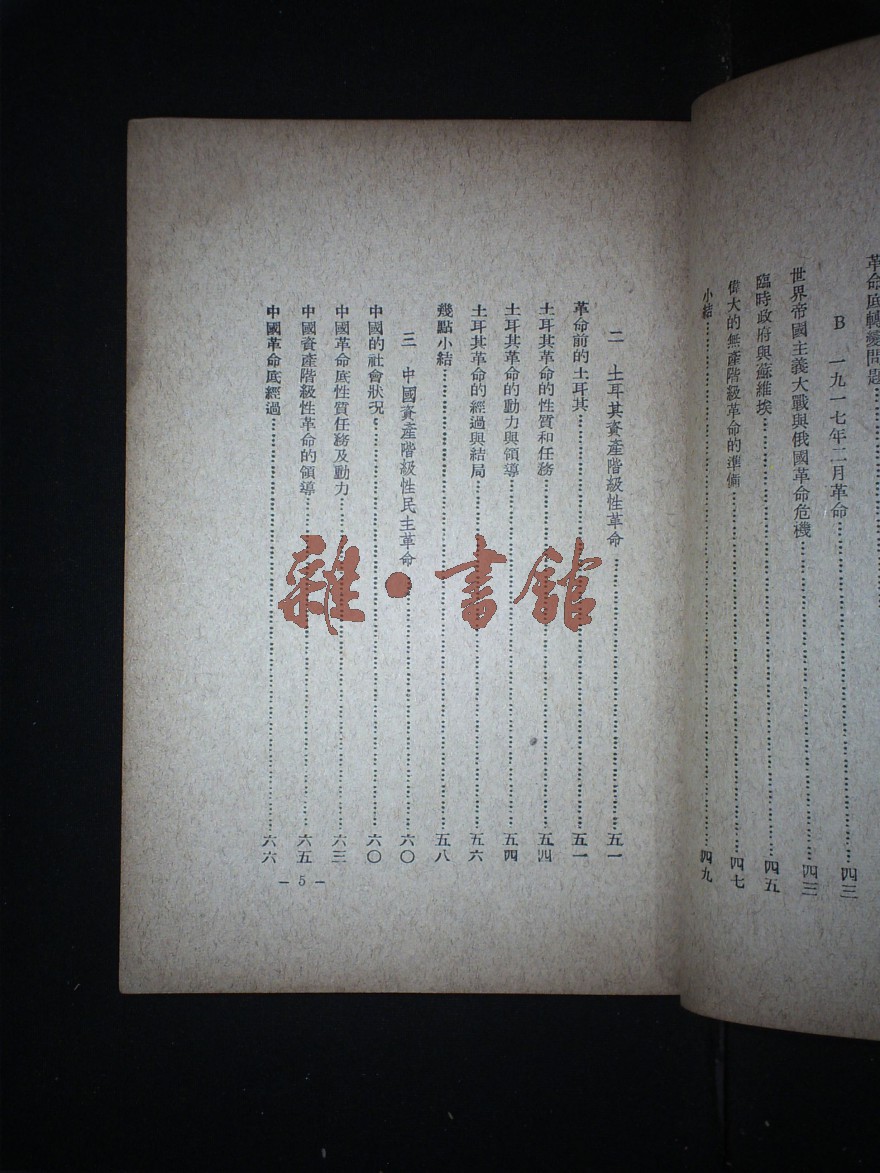 革命底轉變問題
B 一九一七年二月革命……四三
世界帝國主義大戰與俄國革命危機……四三
臨時政府與蘇維埃……四五
偉大的無產階級革命的準備……四七
小結……四九
二 土耳其資產階級性革命……五一
革命前的土耳其……五一
土耳其革命的性質和任務……五四
土耳其革命的動力與領導……五四
土耳其革命的經過與結局……五六
幾點小結……五八
三 中國資產階級性民主革命……六〇
中國的社會狀況……六〇
中國革命底性質任務及動力……六三
中國資產階級性革命的領導……六五
中國革命底經過……六六
— 5 —
雜·書館